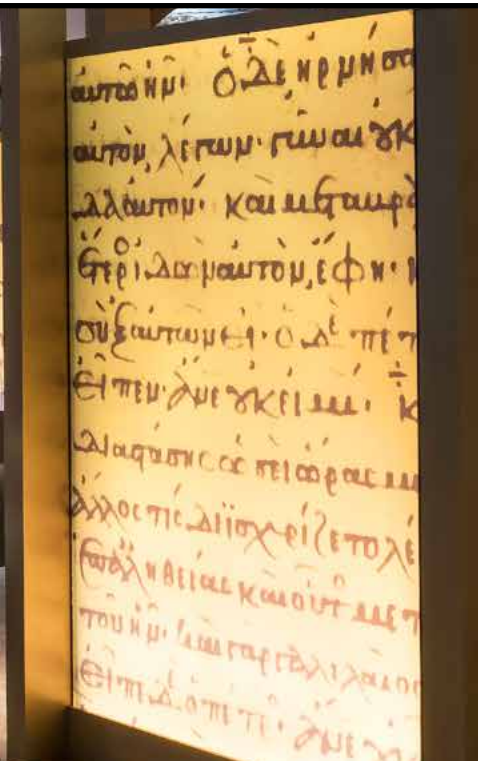 αὐτῶ ἦν· ὁ δὲ ἠρνήσα
αὐτὸν, λέγων· γύναι οὐκ
δα αὐτόν· καὶ μετα βρα
ἕτερος ἰδὼν αὐτὸν, ἔφη·
σὺ ἐξ αὐτῶν εἶ· ὁ δὲ πέτ
εἶπεν· ἄνε οὐκ εἰμί· κ
διαστάσης ὡσεὶ ὥρας μι
ἄλλος τίς διϊσχυρίζετο λέ
ἀληθείας καὶ οὗτ μετ
τοῦ ἦν· καὶ γὰρ γαλιλαῖος
εἶπε δὲ ὁ πετ· ἄνε οὐκ